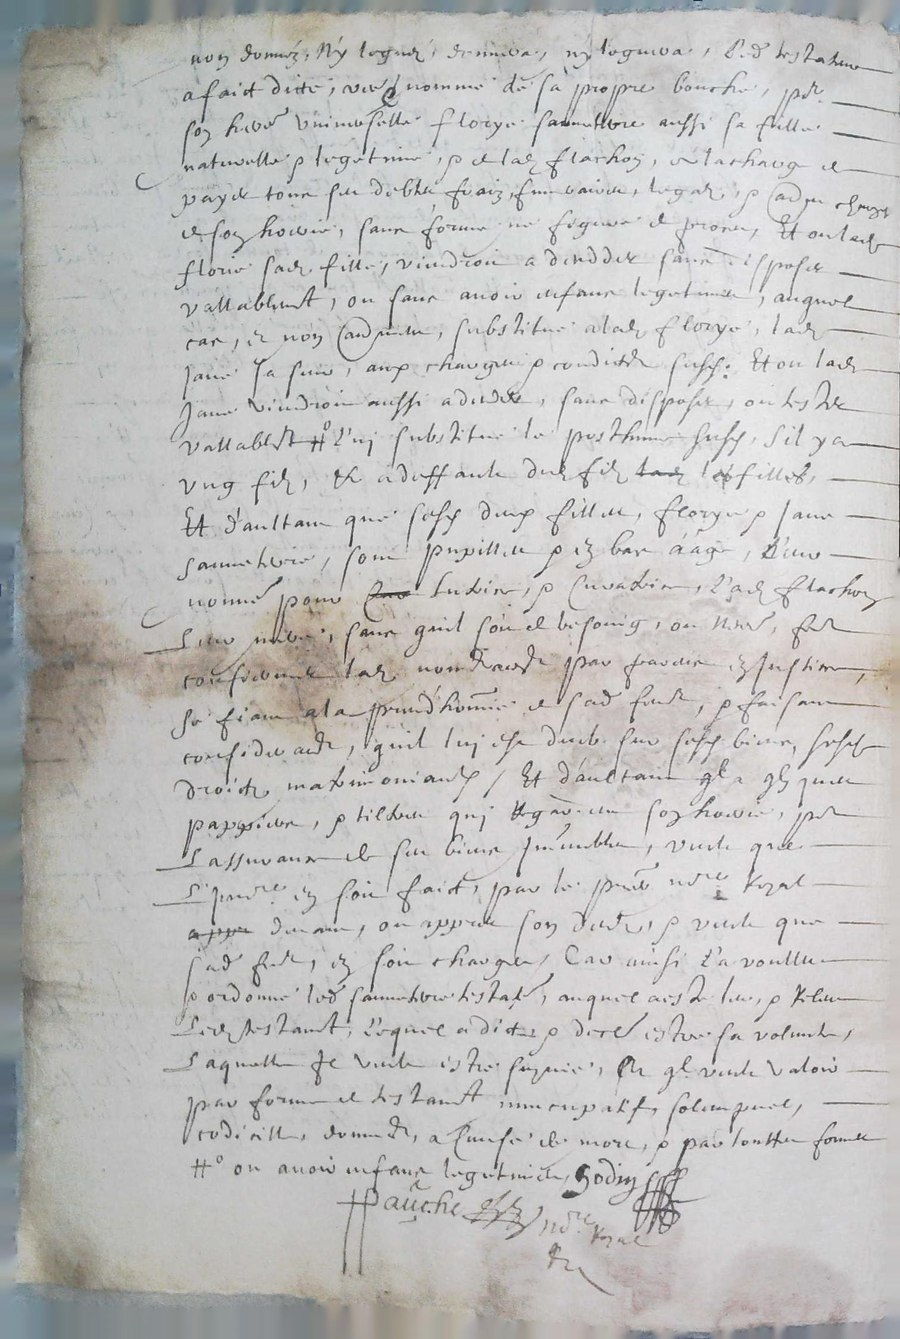 non donné, Ny legué, donnera, ny leguera, Led testateur
a faict dicte, crée nommé de sa propre bouche, pour
son here universelle florye sauveterre aussi sa fille
naturelle & legetime, & de lad flachon, a la charge de
payer tous ses debtes fraiz funeraires, legatz, &
de son hoirie, sans forme ne figure de proces, Et ou lad
florie sad fille, viendroit a decedder sans disposer
vallablemt, ou sans avoir enfans legetimes, auquel
cas, et non aultrement, substitue a lad florye, lad
Jane sa seur, aux charges & conditions susd: Et ou lad
Jane viendroit aussi a deceder, sans disposer, ou tester
vallablemt # Luy substitue le posthume susd, s'il y a
ung filz, Et a deffault dud filz lad les filles,
Et d'aultant que sesd deux filles, florye & Jane
sauveterre, sont pupilles & en bas aage, Leur
nomme pour tutrice, & Curatrice, Lad flachon
Leur mere, sans quil soit de besoing, ou
confirmer lad par en Justice,
se fiant a la preud'homie de sad feme, & faisant
consideraon, quil luy est deub sur sesd biens, sesd
droictz matrimoniaulx / Et d'aultant quil a
pappiers, & tiltres qui regardent son hoirie, pour
L'assurance de ses biens Immeubles, veult que
L'inventre en soit faict, par le prnt nore Royal
devant, ou appres son deces, & veult que
sad feme, en soit chargee, Car ainsi L'a voullu
& ordonné led sauveterre testatr, auquel a esté leu, & releu
Led testamt, Lequel a dict & declé estre sa volunté,
Laquelle Il veult estre suyvie, Et ql veult valoir
par forme de testamt nuncupatif, solempnel,
codicille, donnaon, a Cause de mort, & par touttes formes
# ou avoir enfans legetimes, Godin
Pauche nore Royal